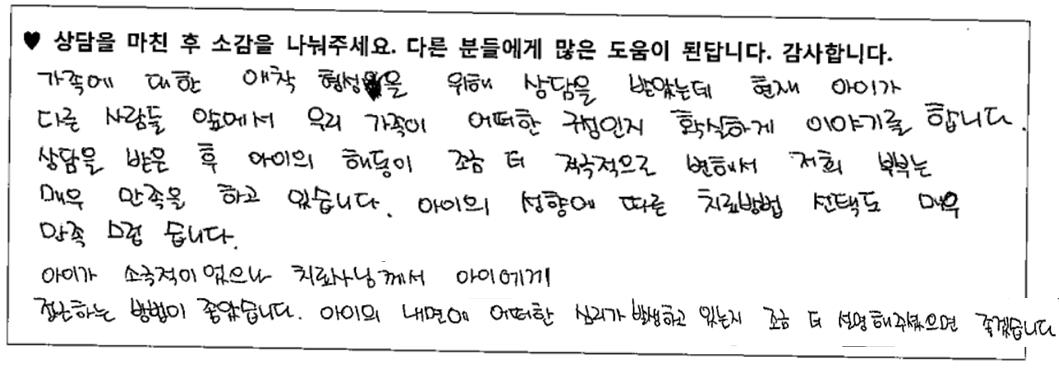 ♥ 상담을 마친 후 소감을 나눠주세요. 다른 분들에게 많은 도움이 된답니다. 감사합니다.
가족에 대한 애착 형성을 위해 상담을 받았는데 현재 아이가
다른 사람들 앞에서 우리 가족이 어떠한 구성인지 확실하게 이야기를 합니다.
상담을 받은 후 아이의 행동이 조금 더 적극적으로 변해서 저희 부부는
매우 만족을 하고 있습니다. 아이의 성향에 따른 치료방법 선택도 매우
만족스럽습니다.
아이가 소극적이었으나 치료사님께서 아이에게
접근하는 방법이 좋았습니다. 아이의 내면에 어떠한 심리가 발생하고 있는지 조금 더 설명해주셨으면 좋겠습니다